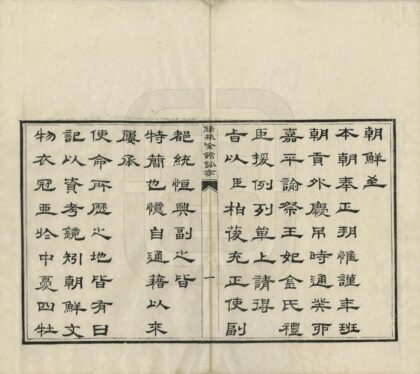 朝鮮至
本朝奉正朔惟謹年班
朝貢外慶弔時通癸卯
嘉平諭祭王妃金氏禮
臣援例列單上請得
旨以臣柏葰充正使副
薜箖吟館鈔存
一
都統恆興副之皆
特簡也憶自通籍以來
屢承
使命所歷之地皆有日
記以資考鏡矧朝鮮文
物衣冠亞於中夏四牡